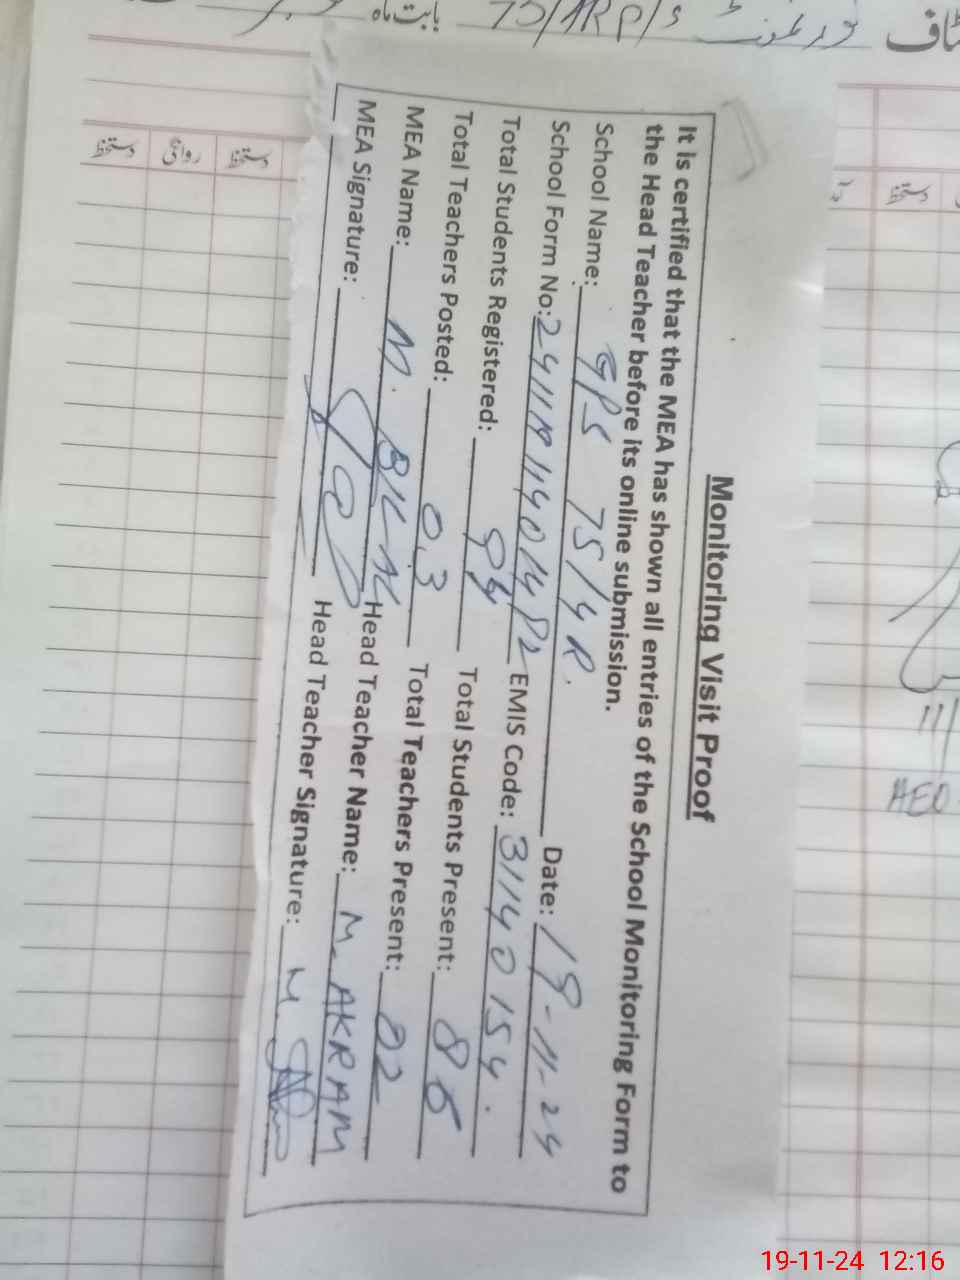 Monitoring Visit Proof
It is certified that the MEA has shown all entries of the School Monitoring Form to
the Head Teacher before its online submission.
School Name: GPS 75/4R. Date: 19-11-24
School Form No: EMIS Code: 31140154.
Total Students Registered: 94 Total Students Present: 86
Total Teachers Posted: 03 Total Teachers Present: 02
MEA Name: M. Head Teacher Name: M. AKRAM
MEA Signature: Head Teacher Signature: M.
AEO
19-11-24 12:16